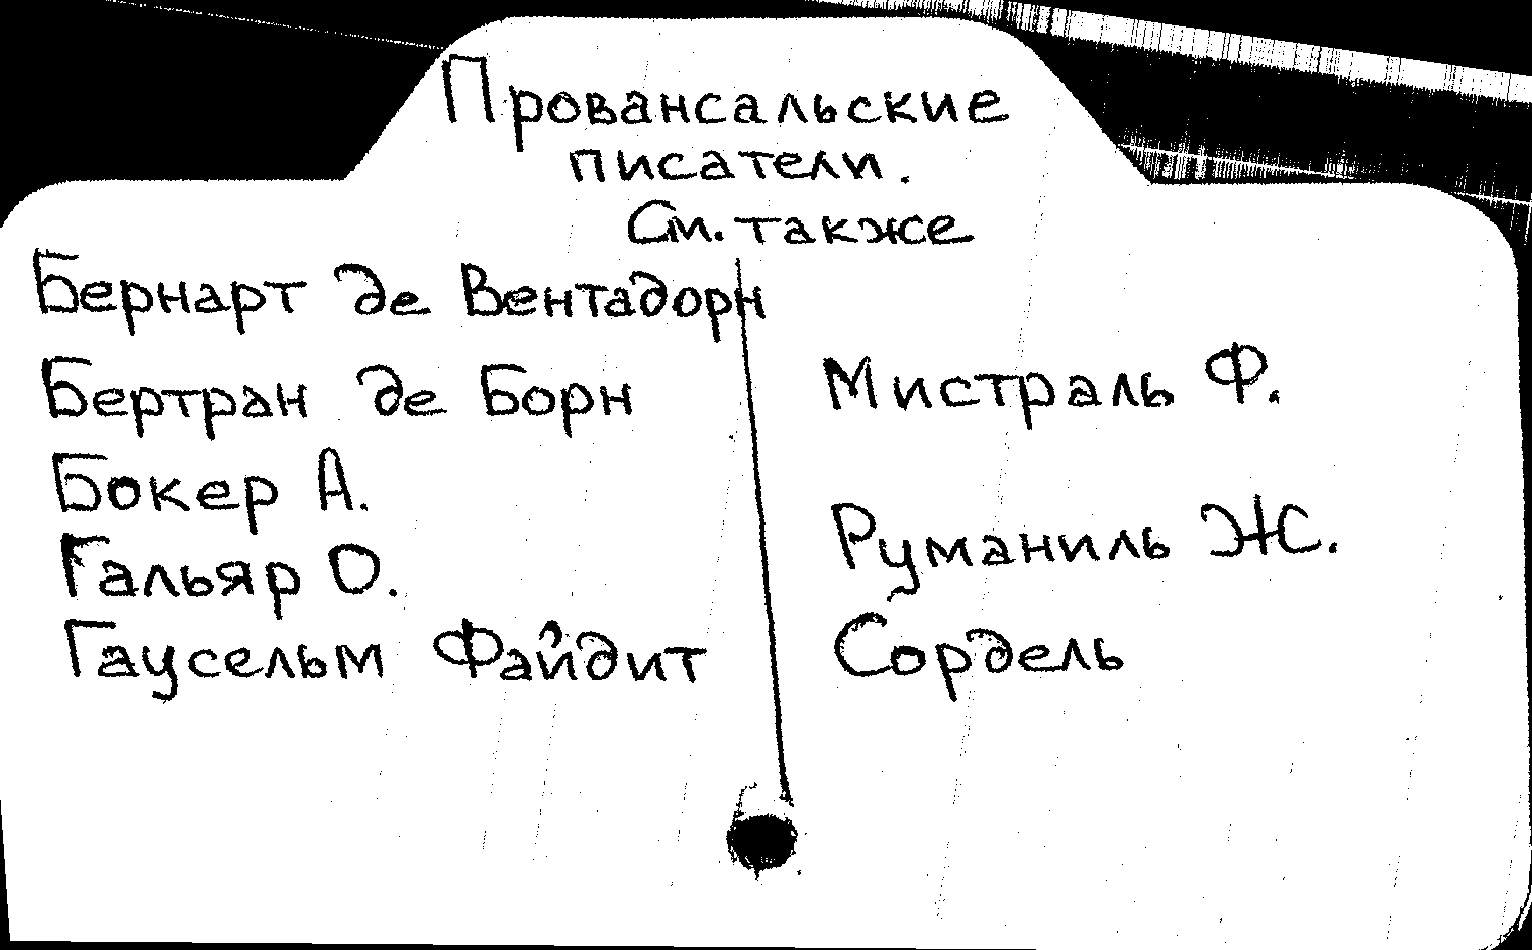 Провансальские
писатели.
См. также
Бернарт де Вентадорн
Бертран де Борн
Бокер А.
Гальяр О.
Гаусельм Файдит
Мистраль Ф.
Руманиль Ж.
Сордель